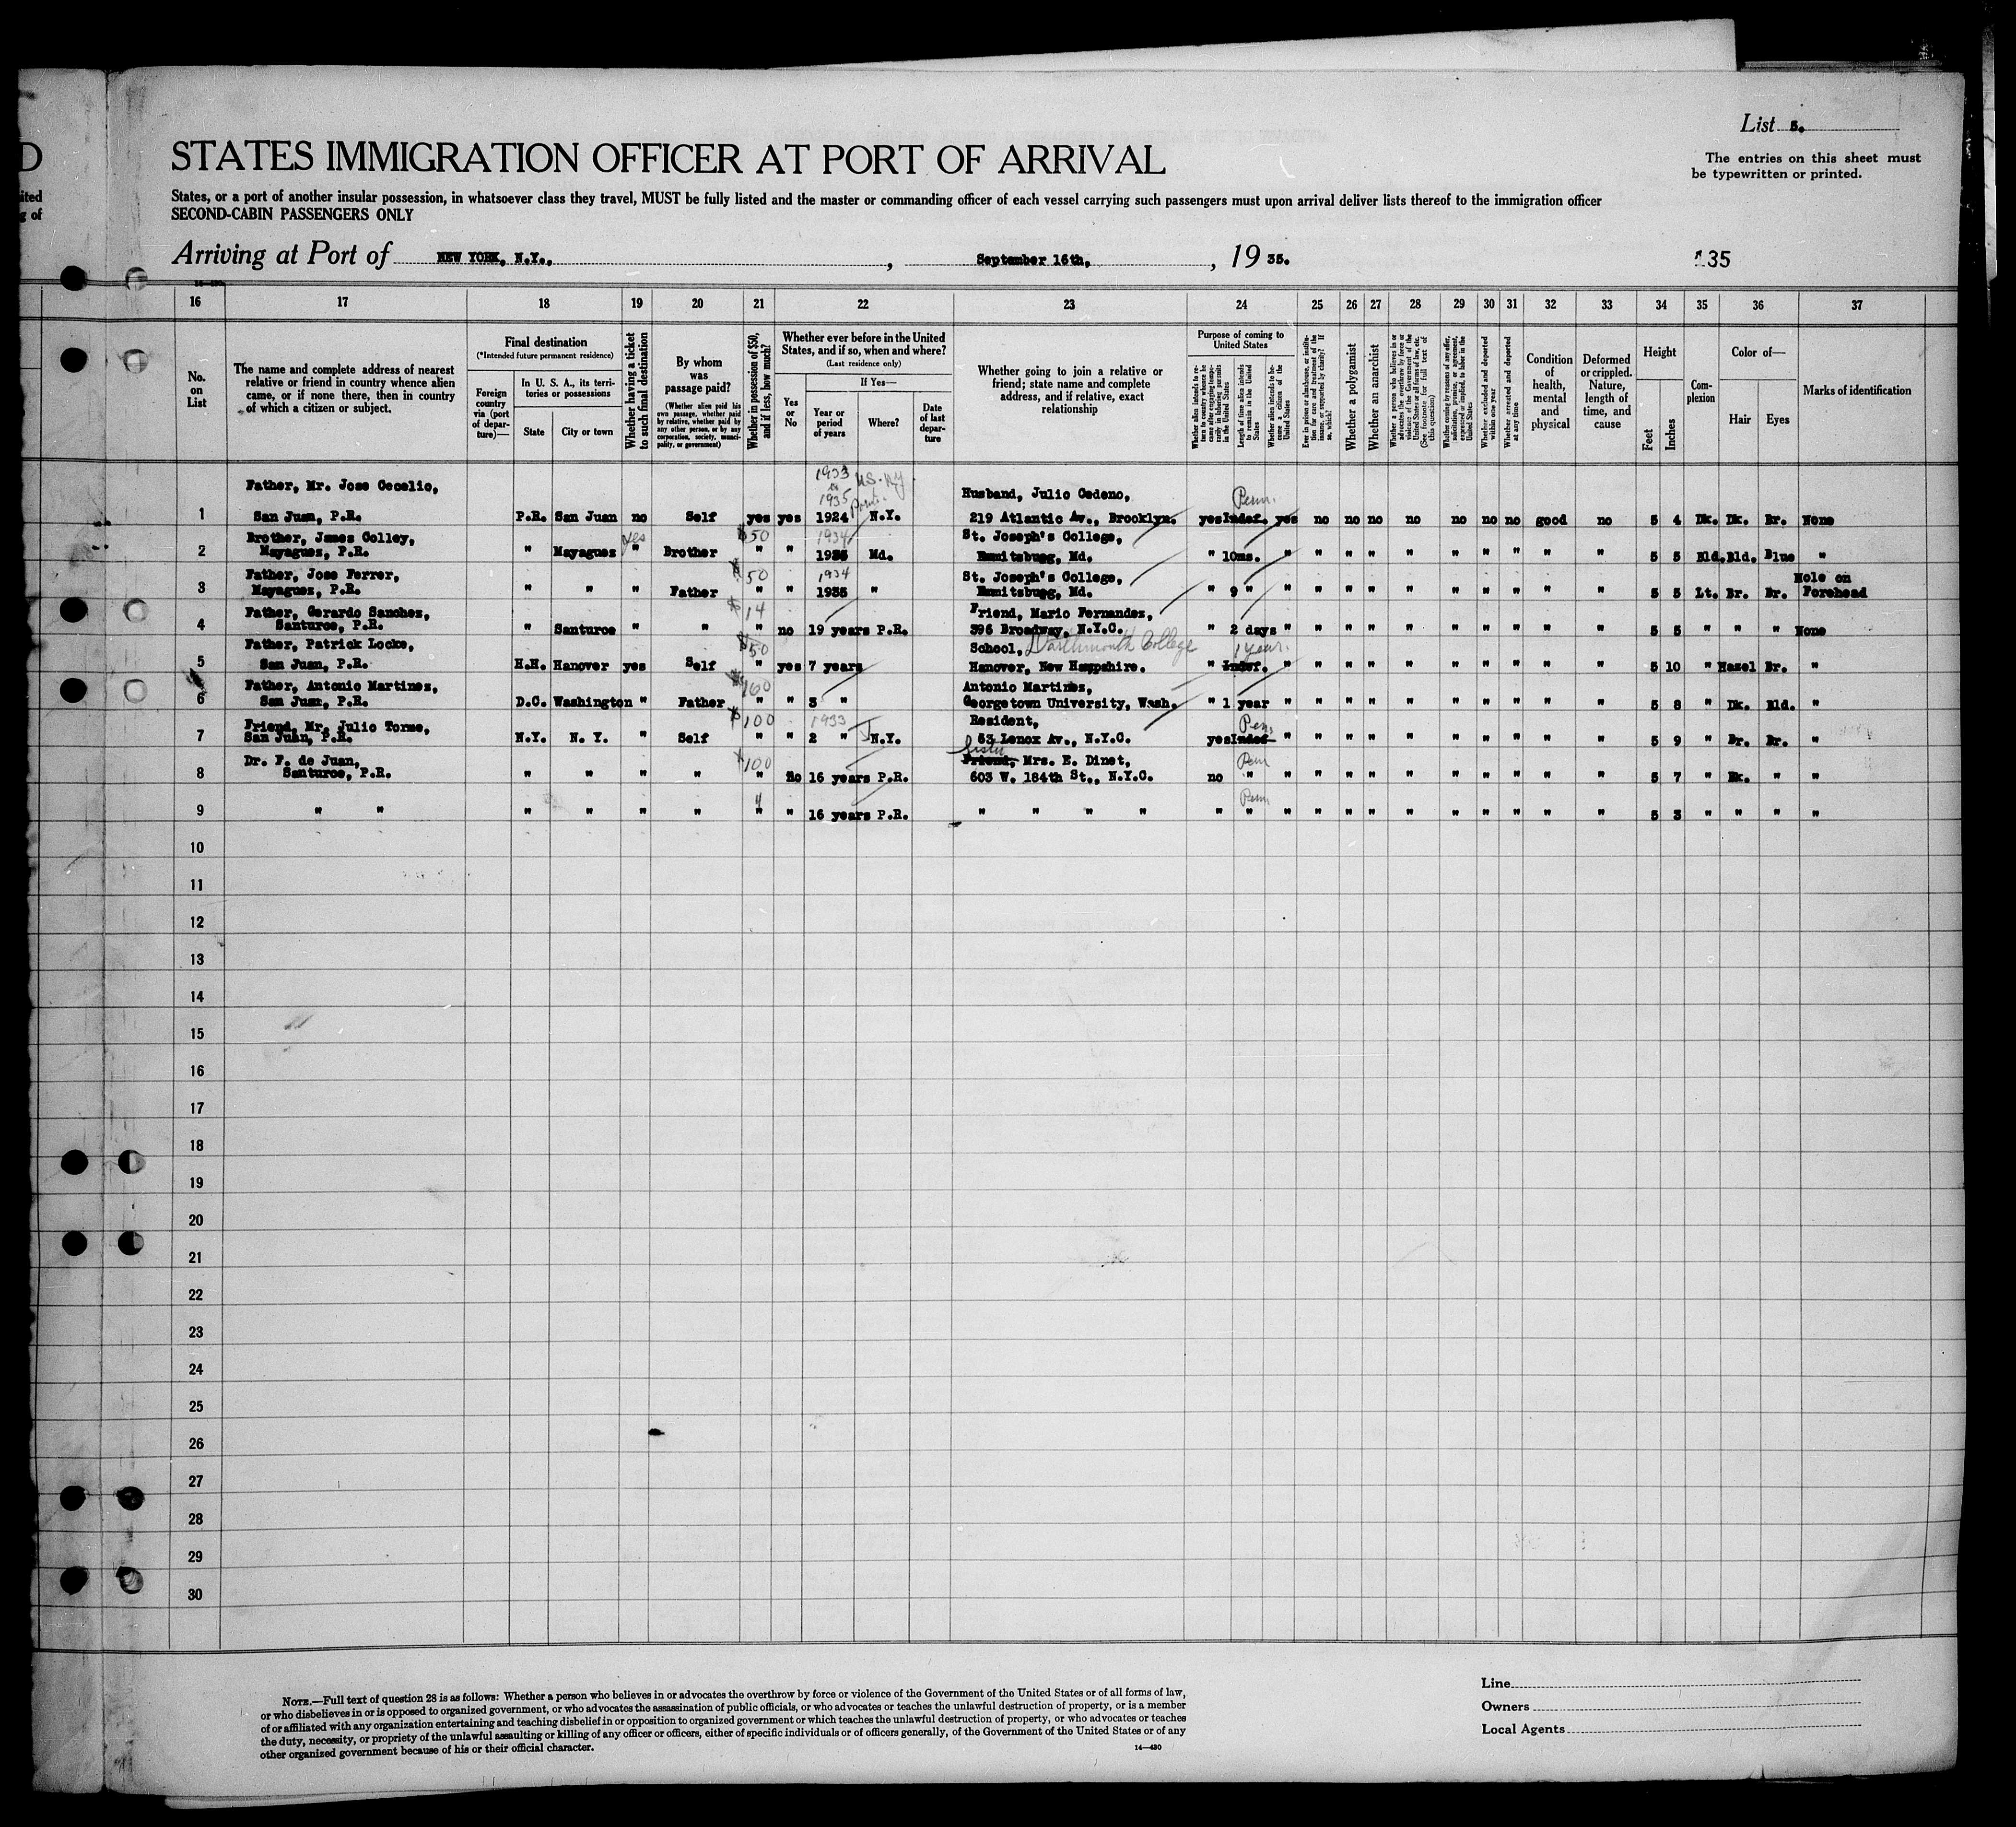 D
ited
g of
List 5.
STATES IMMIGRATION OFFICER AT PORT OF ARRIVAL
The entries on this sheet must
be typewritten or printed.
States, or a port of another insular possession, in whatsoever class they travel, MUST be fully listed and the master or commanding officer of each vessel carrying such passengers must upon arrival deliver lists thereof to the immigration officer
SECOND-CABIN PASSENGERS ONLY
Arriving at Port of NEW YORK, N.Y., , September 16th, , 19 35.
135
16 17 18 19 20 21 22 23 24 25 26 27 28 29 30 31 32 33 34 35 36 37
No.
on
List
The name and complete address of nearest
relative or friend in country whence alien
came, or if none there, then in country
of which a citizen or subject.
Final destination
(*Intended future permanent residence)
Foreign
country
via (port
of depar-
ture)—
In U. S. A., its terri-
tories or possessions
State
City or town
Whether having a ticket
to such final destination
By whom
was
passage paid?
(Whether alien paid his
own passage, whether paid
by relative, whether paid by
any other person, or by any
corporation, society, munici-
pality, or government)
Whether in possession of $50,
and if less, how much?
Whether ever before in the United
States, and if so, when and where?
(Last residence only)
Yes
or
No
If Yes—
Year or
period
of years
Where?
Date
of last
depar-
ture
Whether going to join a relative or
friend; state name and complete
address, and if relative, exact
relationship
Purpose of coming to
United States
Length of time alien intends
to remain in the United
States
Whether alien intends to be-
come a citizen of the
United States
Whether a polygamist
Whether an anarchist
Whether arrested and deported
at any time
Condition
of
health,
mental
and
physical
Deformed
or crippled.
Nature,
length of
time, and
cause
Height
Feet
Inches
Com-
plexion
Color of—
Hair
Eyes
Marks of identification
Father, Mr. Jose Cecelio, 1933 1935 U.S. NY Husband, Julio Cedeno, Perm.
1 San Juan, P.R. P.R. San Juan no Self yes yes 1924 N.Y. 219 Atlantic Av., Brooklyn. yes Indef. yes no no no no no no no good no 5 4 Dk. Dk. Br. None
Brother, James Colley, yes $50 1934 St. Joseph's College,
2 Mayagues, P.R. " Mayagues " Brother " " 1935 Md. Emmitsburg, Md. " 10ms. " " " " " " " " " " 5 5 Bld. Bld. Blue "
Father, Jose Ferrer, $50 1934 St. Joseph's College, Mole on
3 Mayagues, P.R. " " " Father " " 1935 " Emmitsburg, Md. " 9 " " " " " " " " " " " 5 5 Lt. Br. Br. Forehead
Father, Gerardo Sanchez, $14 Friend, Mario Fernandez,
4 Santurce, P.R. " Santurce " " " no 19 years P.R. 396 Broadway, N.Y.C. " 2 days " " " " " " " " " " 5 5 " " " None
Father, Patrick Locke, $50 School, Darthmouth College 1 year.
5 San Juan, P.R. H.H. Hanover yes Self " yes 7 years Hanover, New Hampshire. " Indef. " " " " " " " " " " 5 10 " Hazel Br. "
Father, Antonio Martinez, $160 Antonio Martinez,
6 San Juan, P.R. D.C. Washington " Father " " 3 " Georgetown University, Wash. " 1 year " " " " " " " " " " 5 8 " Dk. Bld. "
Friend, Mr. Julio Torme, $100 1933 Resident, Perm
7 San Juan, P.R. N.Y. N. Y. " Self " " 2 " N.Y. 53 Lenox Av., N.Y.C. yes Indef " " " " " " " " " " 5 9 " Br. Br. "
Dr. F. de Juan, $100 Sister Friend, Mrs. E. Dinet, Perm
8 Santurce, P.R. " " " " " no 16 years P.R. 603 W. 184th St., N.Y.C. no " " " " " " " " " " " 5 7 " Dk. " "
4 Perm
9 " " " " " " " " 16 years P.R. " " " " " " " " " " " " " " " " 5 3 " " " "
10
11
12
13
14
15
16
17
18
19
20
21
22
23
24
25
26
27
28
29
30
NOTE.—Full text of question 28 is as follows: Whether a person who believes in or advocates the overthrow by force or violence of the Government of the United States or of all forms of law,
or who disbelieves in or is opposed to organized government, or who advocates the assassination of public officials, or who advocates or teaches the unlawful destruction of property, or is a member
of or affiliated with any organization entertaining and teaching disbelief in or opposition to organized government or which teaches the unlawful destruction of property, or who advocates or teaches
the duty, necessity, or propriety of the unlawful assaulting or killing of any officer or officers, either of specific individuals or of officers generally, of the Government of the United States or of any
other organized government because of his or their official character.
14—430
Line
Owners
Local Agents